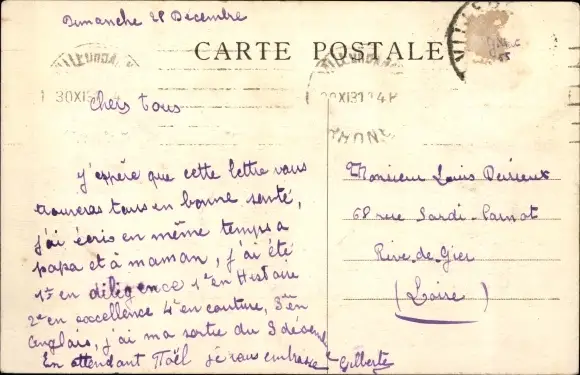 Dimanche 28 Décembre
CARTE POSTALE
VILLEURBANNE
30XI31
30XI31 24H
RHONE
Chers tous
J'espère que cette lettre vous
trouveras tous en bonne senté,
j'ai écris en même temps a
papa et à maman, j'ai été
1re en diligence 1re en Histoire
2e en excellence 4e en couture, 3e en
Anglais, j'ai ma sortie du 3 décembre
En attendant Noël je vous embrasse Gilberte
Monsieur Louis
68 rue Sardi-Carnot
Rive-de-Gier
(Loire)